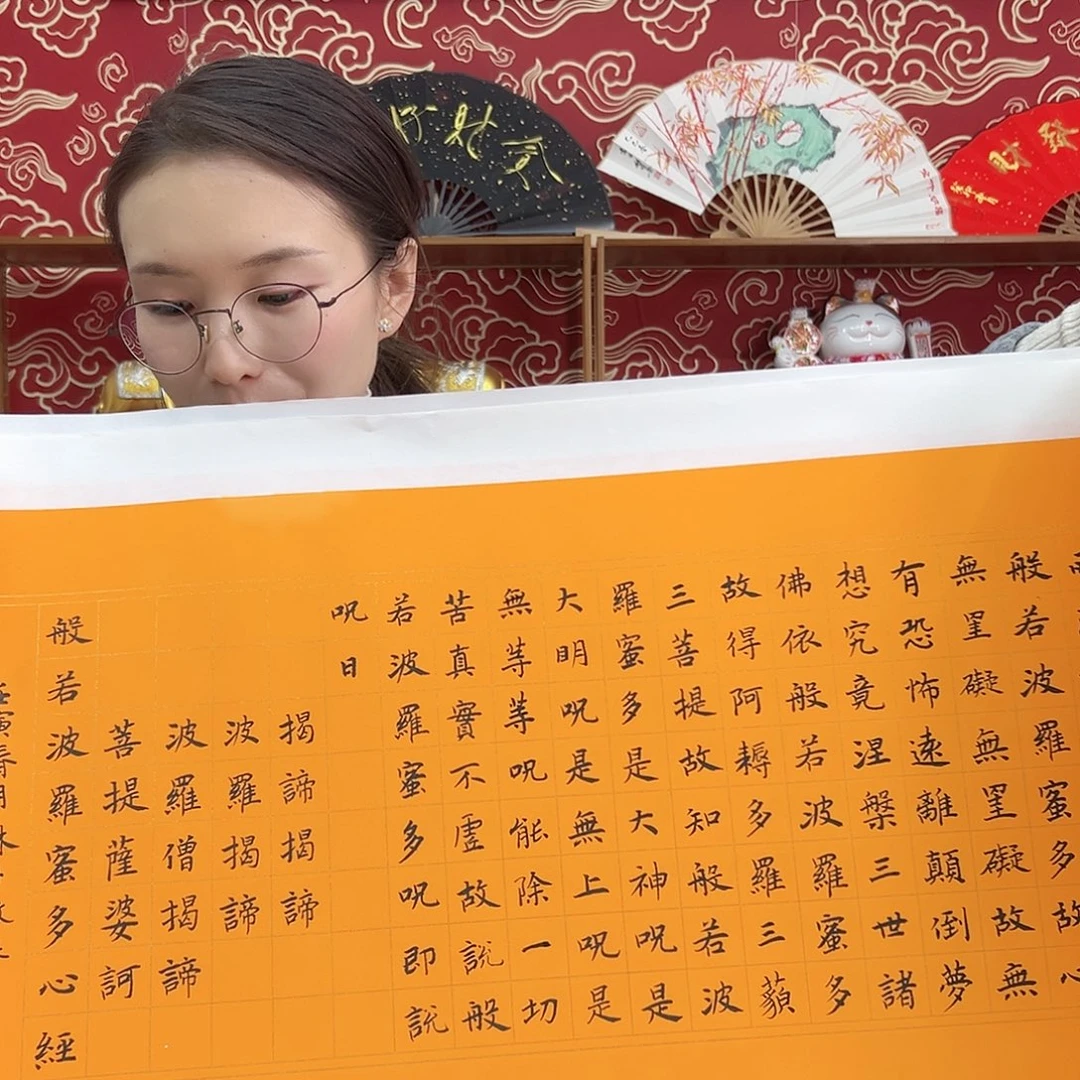 發財
般若波羅蜜多故心
無罣礙無罣礙故無
有恐怖遠離顛倒夢
想究竟涅槃三世諸
佛依般若波羅蜜多
故得阿耨多羅三藐
三菩提故知般若波
羅蜜多是大神呪是
大明呪是無上呪是
無等等呪能除一切
苦真實不虛故説般
若波羅蜜多呪即説
呪曰
揭諦揭諦
波羅揭諦
波羅僧揭諦
菩提薩婆訶
般若波羅蜜多心經